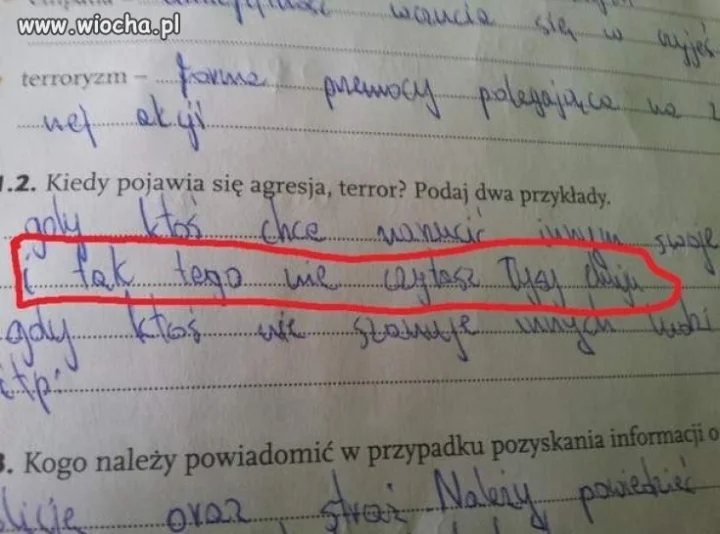 www.wiocha.pl
wrzucia się w czyjeś
terroryzm – forma przemocy polegająca na
nej akcji
1.2. Kiedy pojawia się agresja, terror? Podaj dwa przykłady.
gdy ktoś chce narzucić innym swoje
i tak tego nie czytasz Łysy
gdy ktoś nie szanuje innych ludzi
itp.
3. Kogo należy powiadomić w przypadku pozyskania informacji o
oraz straż Należy powiedzieć